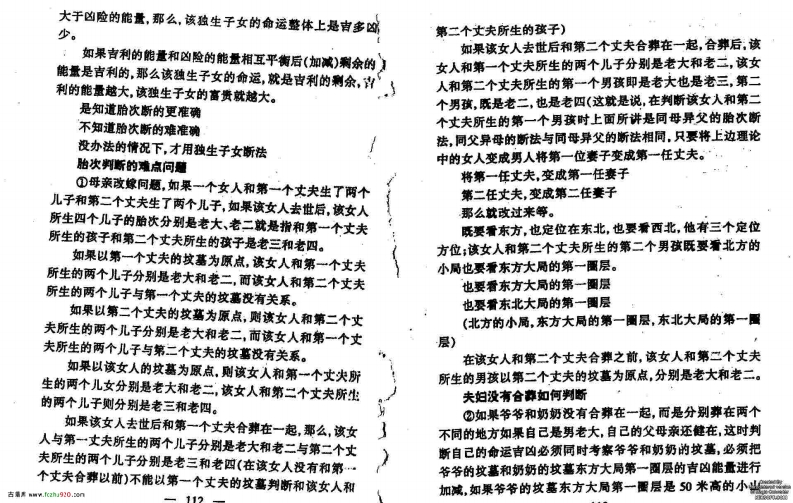 大于凶险的能量,那么,该独生子女的命运整体上是吉多凶
少。
如果吉利的能量和凶险的能量相互平衡后(加减)剩余的
能量是吉利的,那么该独生子女的命运,就是吉利的剩余,吉
利的能量越大,该独生子女的富贵就越大。
是知道胎次断的更准确
不知道胎次断的难准确
没办法的情况下,才用独生子女断法
胎次判断的难点问题
①母亲改嫁问题,如果一个女人和第一个丈夫生了两个
儿子和第二个丈夫生了两个儿子,如果该女人去世后,该女人
所生四个儿子的胎次分别是老大、老二就是指和第一个丈夫
所生的孩子和第二个丈夫所生的孩子是老三和老四。
如果以第一个丈夫的坟墓为原点,该女人和第一个丈夫
所生的两个儿子分别是老大和老二,而该女人和第二个丈夫
所生的两个儿子与第一个丈夫的坟墓没有关系。
如果以第二个丈夫的坟墓为原点,则该女人和第二个丈
夫所生的两个儿子分别是老大和老二,而该女人和第一个丈
夫所生的两个儿子与第二个丈夫的坟墓没有关系。
如果以该女人的坟墓为原点,则该女人和第一个丈夫所
生的两个儿女分别是老大和老二,该女人和第二个丈夫所生
的两个儿子则分别是老三和老四。
如果该女人去世后和第一个丈夫合葬在一起,那么,该女
人与第一丈夫所生的两个儿子分别是老大和老二与第二个丈
夫所生的两个儿子分别是老三和老四(在该女人没有和第一
个丈夫合葬以前)不能以第一个丈夫的坟墓判断和该女人和
— 112 —
第二个丈夫所生的孩子)
如果该女人去世后和第二个丈夫合葬在一起,合葬后,该
女人和第一个丈夫所生的两个儿子分别是老大和老二,该女
人和第二个丈夫所生的第一个男孩即是老大也是老三,第二
个男孩,既是老二,也是老四(这就是说,在判断该女人和第二
个丈夫所生的第一个男孩时上面所讲是同母异父的胎次断
法,同父异母的断法与同母异父的断法相同,只要将上边理论
中的女人变成男人将第一位妻子变成第一任丈夫。
将第一任丈夫,变成第一任妻子
第二任丈夫,变成第二任妻子
那么就改过来等。
既要看东方,也定位在东北,也要看西北,他有三个定位
方位;该女人和第二个丈夫所生的第二个男孩既要看北方的
小局也要看东方大局的第一圈层。
也要看东方大局的第一圈层
也要看东北大局的第一圈层
(北方的小局,东方大局的第一圈层,东北大局的第一圈
层)
在该女人和第二个丈夫合葬之前,该女人和第二个丈夫
所生的男孩以第二个丈夫的坟墓为原点,分别是老大和老二。
夫妇没有合葬如何判断
②如果爷爷和奶奶没有合葬在一起,而是分别葬在两个
不同的地方如果自己是男老大,自己的父母亲还健在,这时判
断自己的命运吉凶必须同时考察爷爷和奶奶的坟墓,必须把
爷爷的坟墓和奶奶的坟墓东方大局第一圈层的吉凶能量进行
加减,如果爷爷的坟墓东方大局第一圈层是 50 米高的小山
古易库 www.fczhu920.com